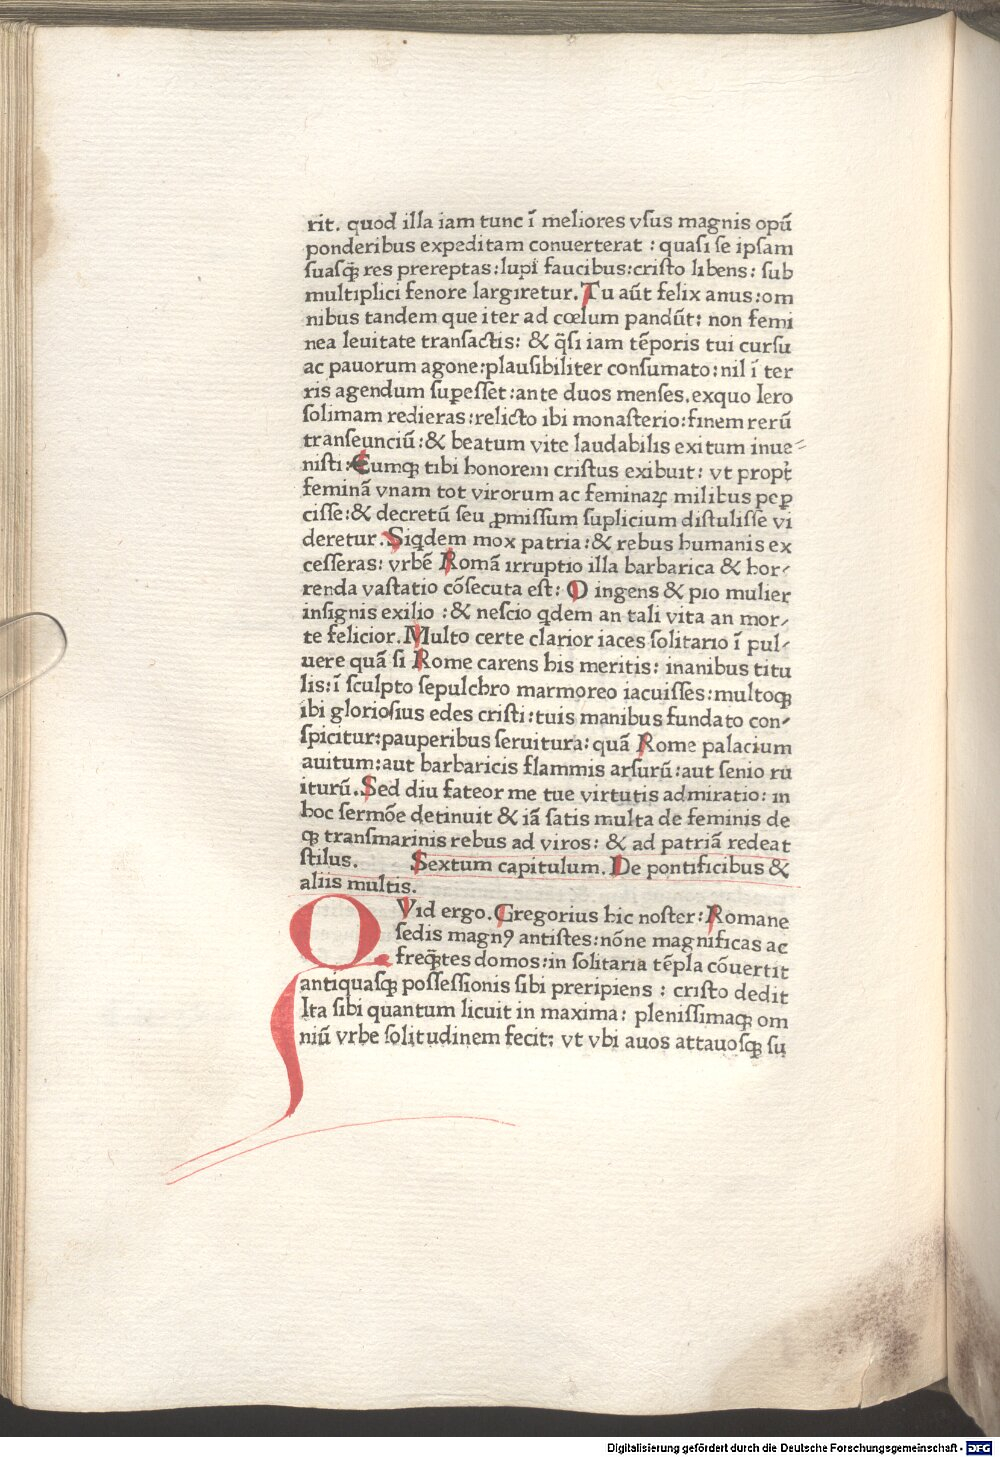 rit. quod illa iam tunc ī meliores vſus magnis opū
ponderibus expeditam conuerterat : quaſi ſe ipſam
ſuaſqꝫ res prereptas:lupi faucibus:criſto libens: ſub
multiplici fenore largiretur. Tu aūt felix anus:om
nibus tandem que iter ad cœlum pandūt: non femi
nea leuitate tranſactis: & q̄ſi iam tēporis tui curſu
ac pauorum agone:plauſibiliter conſumato:nil ī ter
ris agendum ſupeſſet:ante duos menſes.exquo Iero
ſolimam redieras:relicto ibi monaſterio:finem rerū
tranſeunciū:& beatum vite laudabilis exitum inue⸗
niſti:Cumqꝫ tibi honorem criſtus exibuit: vt propt̄
feminā vnam tot virorum ac feminaꝝ milibus peꝑ
ciſſe:& decretū ſeu ꝓmiſſum ſuplicium diſtuliſſe vi
deretur. Siqdem mox patria:& rebus humanis ex
ceſſeras: vrbē Romā irruptio illa barbarica & hor⸗
renda vaſtatio cōſecuta eſt: O ingens & pio mulier
inſignis exilio :& neſcio qdem an tali vita an mor⸗
te felicior. Multo certe clarior iaces ſolitario ī pul⸗
uere quā ſi Rome carens his meritis: inanibus titu
lis:ī ſculpto ſepulchro marmoreo iacuiſſes:multoqꝫ
ibi glorioſius edes criſti:tuis manibus fundato con⸗
ſpicitur:pauperibus ſeruitura: quā Rome palacium
auitum:aut barbaricis flammis arſurū:aut ſenio ru
iturū. Sed diu fateor me tue virtutis admiratio: in
hoc ſermōe detinuit & iā ſatis multa de feminis de
qꝫ tranſmarinis rebus ad viros: & ad patriā redeat
ſtilus. Sextum capitulum. De pontificibus &
aliis multis.
QVid ergo. Gregorius hic noſter: Romane
ſedis magnꝰ antiſtes:nōne magnificas ac
freqꝫ̄tes domos:in ſolitaria tēpla cōuertit
antiquaſqꝫ poſſeſſionis ſibi preripiens : criſto dedit
Ita ſibi quantum licuit in maxima: pleniſſimaqꝫ om
niū vrbe ſolitudinem fecit: vt vbi auos attauoſqꝫ ſu
Digitalisierung gefördert durch die Deutsche Forschungsgemeinschaft - DFG